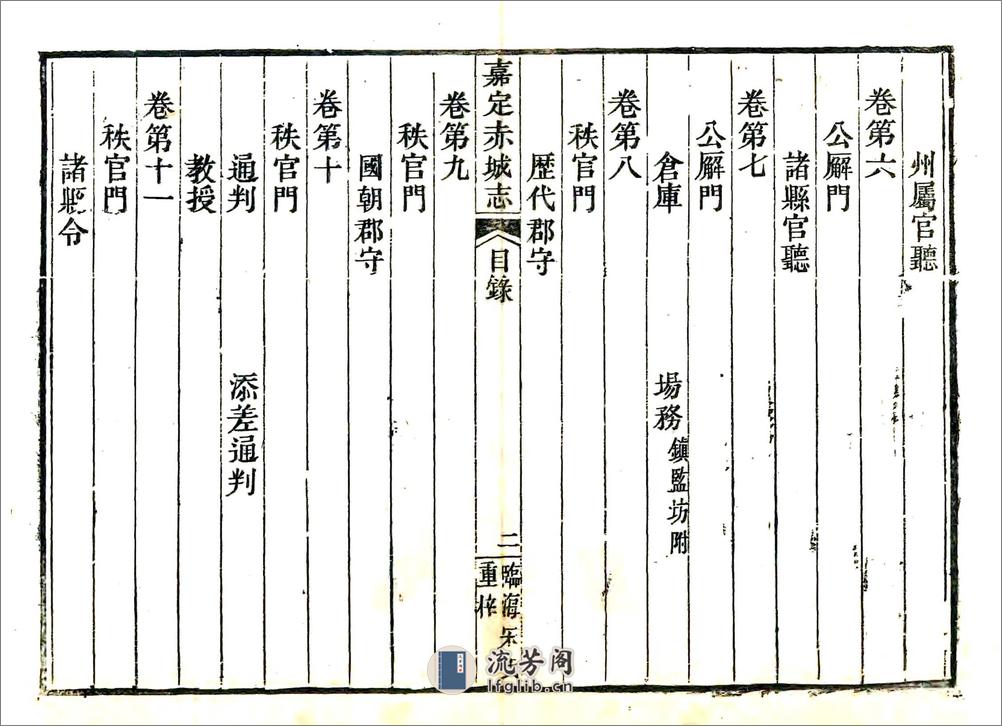 州屬官聽
卷第六
公廨門
諸縣官聽
卷第七
公廨門
倉庫　場務鎮監坊附
卷第八
秩官門
歷代郡守
嘉定赤城志　目錄　二　臨海
重梓
卷第九
秩官門
國朝郡守
卷第十
秩官門
通判　添差通判
教授
卷第十一
秩官門
諸縣令
流芳阁
lfglib.cn